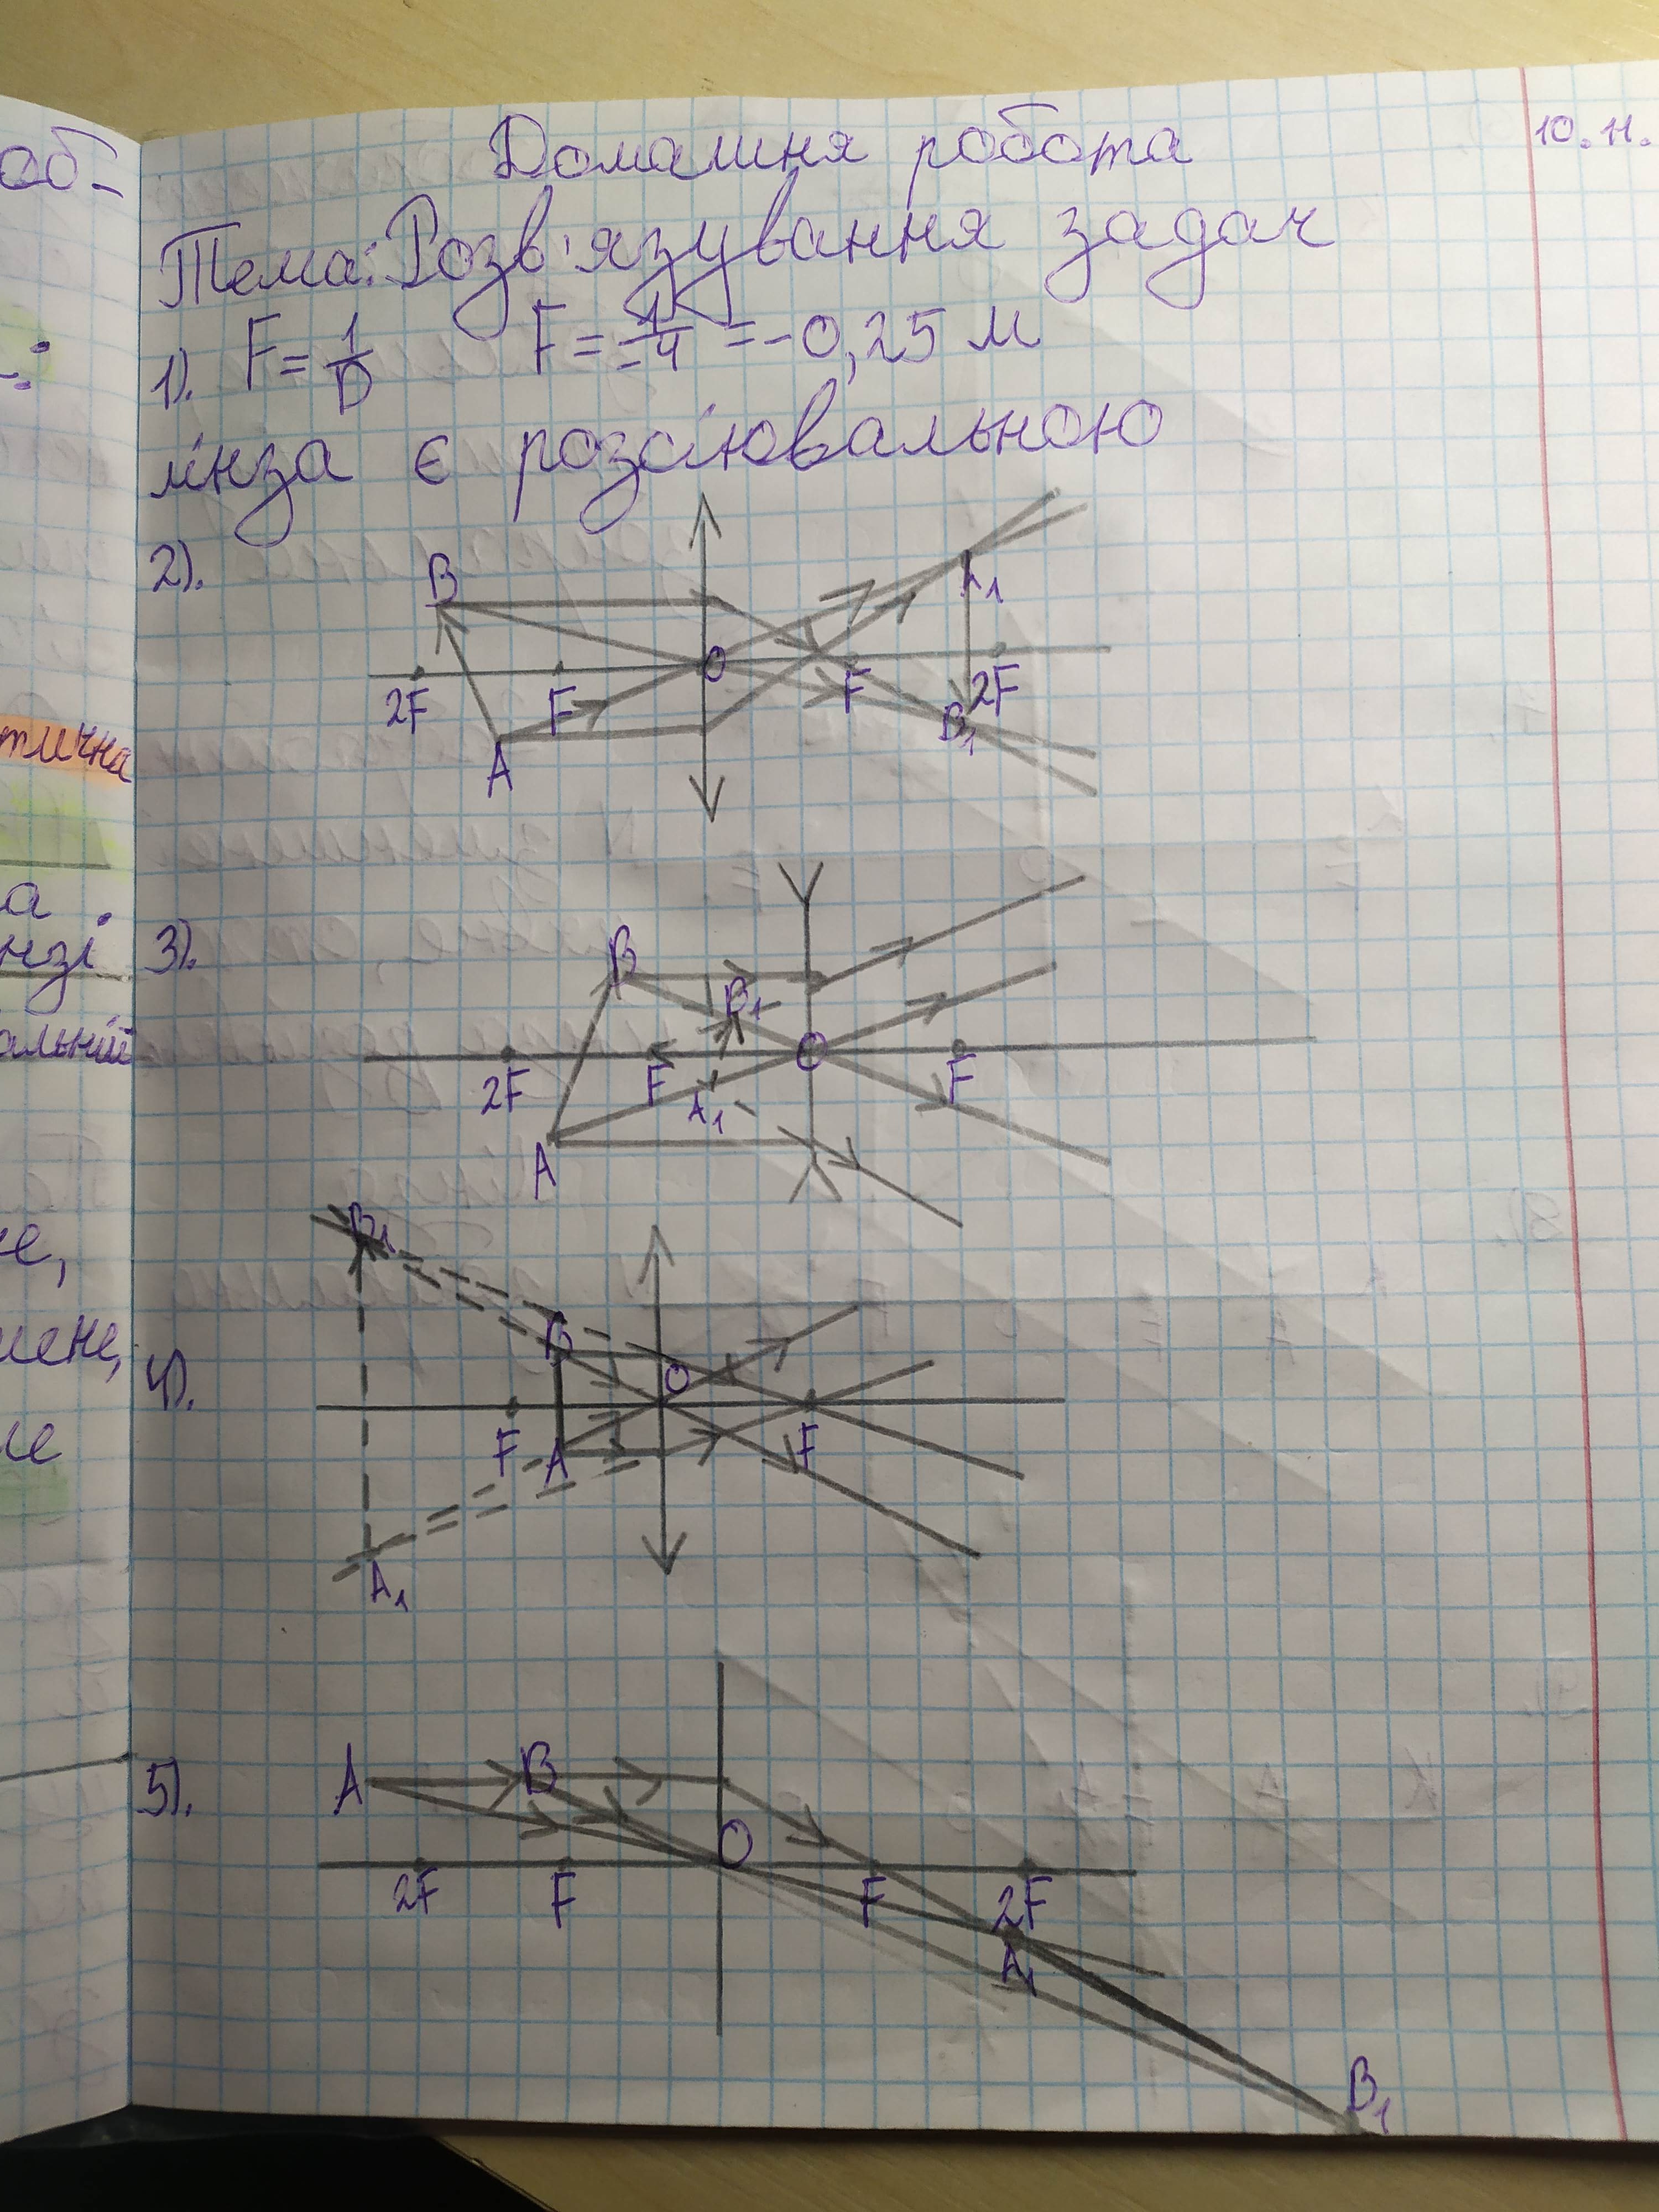 Домашня робота
10.11.
Тема: Розв'язування задач
1). F = 1/D F = 1/-4 = -0,25 м
лінза є розсіювальною
2).
B
A1
2F F O F 2F
A
B1
3).
B
B1
O
2F F A1 F
A
B1
B
4).
O
F A F
A1
5).
A B
O
2F F F 2F
A1
B1
об-
тична
а.
нзі
альній
е,
мене,
ле